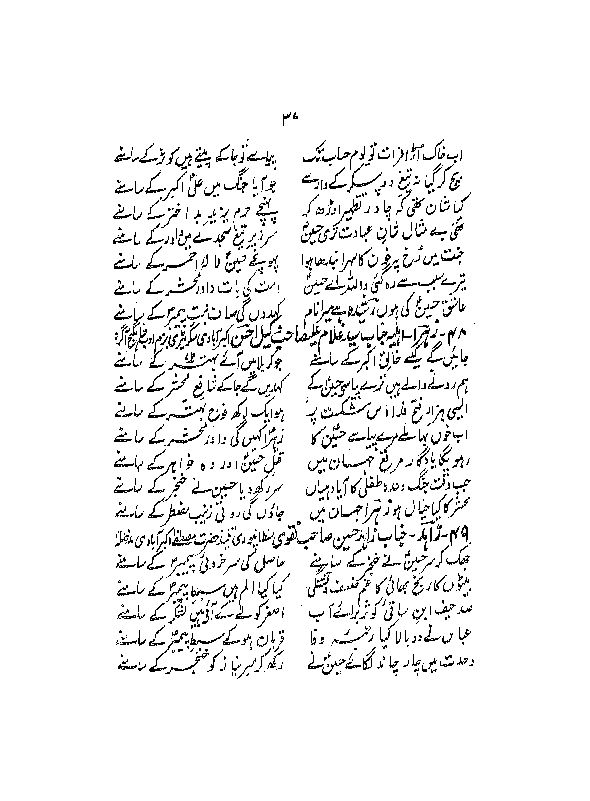 ۳۷
اب خاک اڑا فرات تو لوم حساب تک پیاسے تو جا کے پیتے ہیں کوثر کے سامنے
بچ کر گیا نہ تیغ دو پیکر کے وار سے جو آیا جنگ میں علی اکبر کے سامنے
کیا شان تھی کہ چادر تطہیر اوڑھ کر پہنچے حرم یزید بد اختر کے سامنے
تھی بے مثال شان عبادت تری حسین سر زیر تیغ سجدے میں داور کے سامنے
جنت میں سرخ پہ خون کا سہرا بندھا ہوا پہونچے حسین لالہ احمر کے سامنے
تیرے سبب سے رہ گئی واللہ اے حسین امت کی بات داور محشر کے سامنے
عاشق حسین کی ہوں سے میرا نام کہدوں گی صاف پیمبر کے سامنے
۴۸- زہرا- اہلیہ جناب سید غلام صاحب اکبر آبادی
جائیں گے لیکے خالق اکبر کے سامنے جو کربلا میں آئے بہتر کے سامنے
ہم رونے والے ہیں ترے پیاسی حسین کے کہدیں گے جا کے شافع محشر کے سامنے
ایسی ہزار فتح فدا اس شکست پر ہو ایک لاکھ فوج بہتر کے سامنے
اب خوں بہا ملے مرے پیاسے حسین کا زہرا کہیں گی داور محشر کے سامنے
رہویگا یادگار مرقع جہان میں قتل حسین اور وہ خواہر کے سامنے
جب وقت جنگ وعدہ طفلی کا آیا دہیاں سر رکھدیا حسین نے خنجر کے سامنے
محشر کا کیا خیال ہو زہرا جہان میں جاؤں گی روتی زینب مضطر کے سامنے
۴۹- زاہد- جناب زاہد حسین صاحب نقوی حضرت اکبر آبادی
جھک کر حسین نے خنجر کے سامنے حاصل کی سرخروئی پیمبر کے سامنے
بیٹوں کا رنج بھائی کا غم تشنگی کیا کیا الم ہیں سبط پیمبر کے سامنے
صد حیف ابن ساقی کوثر برائے آب اصغر کو لے کے آئے ہیں لشکر کے سامنے
عباس نے دوبالا کیا رتبہ وفا قربان ہو کے سبط پیمبر کے سامنے
وحدت میں چار چاند لگائے حسین نے رکھ کر سر نیاز کو خنجر کے سامنے